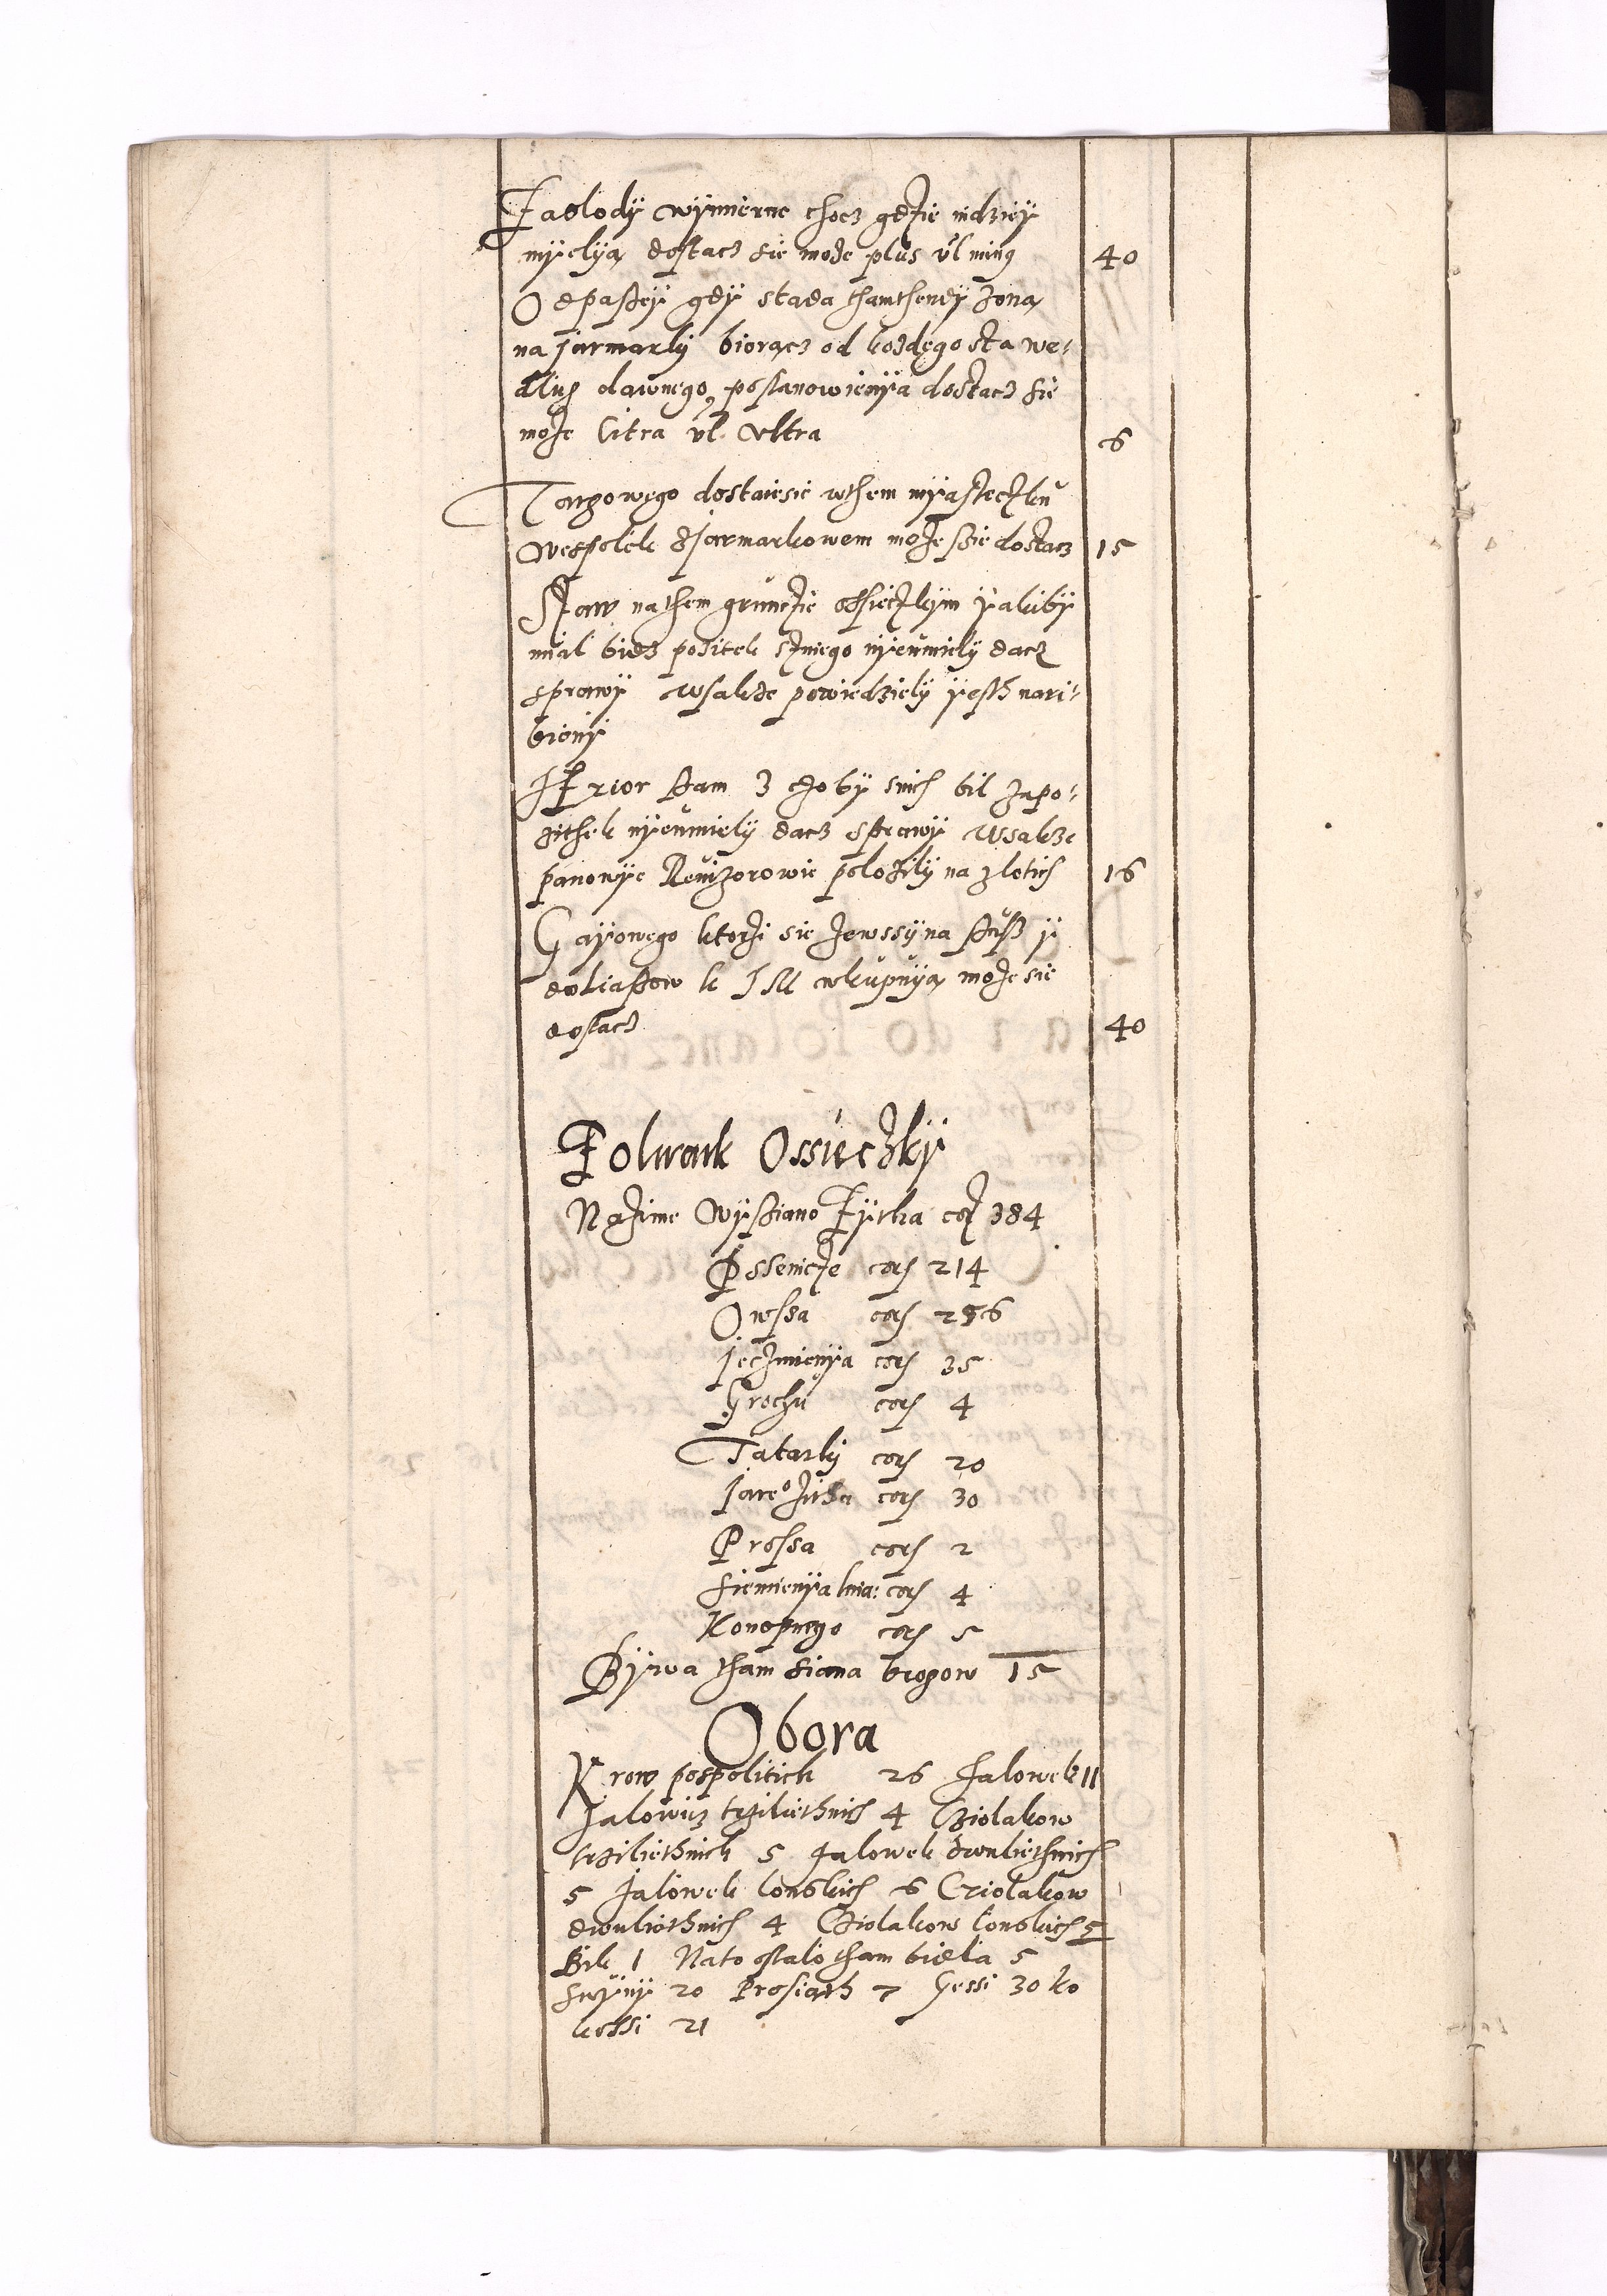 Zaslody wymierne chocz gdzie indziey
myelya dostacz sie može plus vl ming 40
Odpaskey gdy stada thamthendy zona
na jarmarky bioracz od kozdego sta we-
dlug dawnego postanowienya dostacz sie
moze Citra vl. vltra 6
Targowego dostaie sie wthem myasteczku
wespolek zjarmarkowem moze ssie dostacz 15
Staw nathem gruncie ossieczkym yakiby
mial bidz pozitek szniego nyeumiely dacz
sprawy wsakze powiedziely yesth nari-
biony
Jezior tham 3 czoby snich bil zapo-
zithek nyeumiely dacz sprawy wsakze
panowye Rewizorowie polozily na zlotich 16
Gayowego ktorzi sie zewssy na
k JM wkupuya moze sie
dostacz 40
Folwark Ossieczky
Nazime wyssiano Zytha cor 384
Pssenicze cor 214
Owssa cor 256
Jeczmienya cor 35
Grochu cor 4
Tatarky cor 20
Jare° zitha cor 30
Prossa cor 2
Siemienya lnia: cor 4
Konopnego cor 5
Bywa tham siana brogow 15
Obora
Krow pospolitich 26 Jalowek 11
Jalowicz trziliethnich 4 Cziolakow
trziliethnich 5 Jalowek dwuliethnich
5 Jalowek lonskich 6 Cziolakow
dwuliethnich 4 Cziolakow lonskich 5
Bik 1 Nato ostalo tham bidla 5
Swyny 20 Prosiath 7 Gessi 30 ko
kossi 21